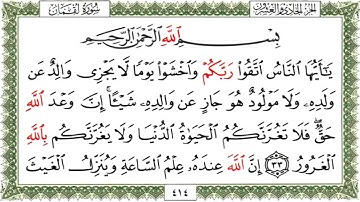 سورة لقمان الجزء الحادي والعشرون
بِسْمِ ٱللَّهِ ٱلرَّحْمَٰنِ ٱلرَّحِيمِ
يَٰٓأَيُّهَا ٱلنَّاسُ ٱتَّقُوا۟ رَبَّكُمْ وَٱخْشَوْا۟ يَوْمًا لَّا يَجْزِى وَالِدٌ عَن
وَلَدِهِۦ وَلَا مَوْلُودٌ هُوَ جَازٍ عَن وَالِدِهِۦ شَيْـًٔا ۚ إِنَّ وَعْدَ ٱللَّهِ
حَقٌّ ۖ فَلَا تَغُرَّنَّكُمُ ٱلْحَيَوٰةُ ٱلدُّنْيَا وَلَا يَغُرَّنَّكُم بِٱللَّهِ
ٱلْغَرُورُ ٣٣ إِنَّ ٱللَّهَ عِندَهُۥ عِلْمُ ٱلسَّاعَةِ وَيُنَزِّلُ ٱلْغَيْثَ
٤١٤